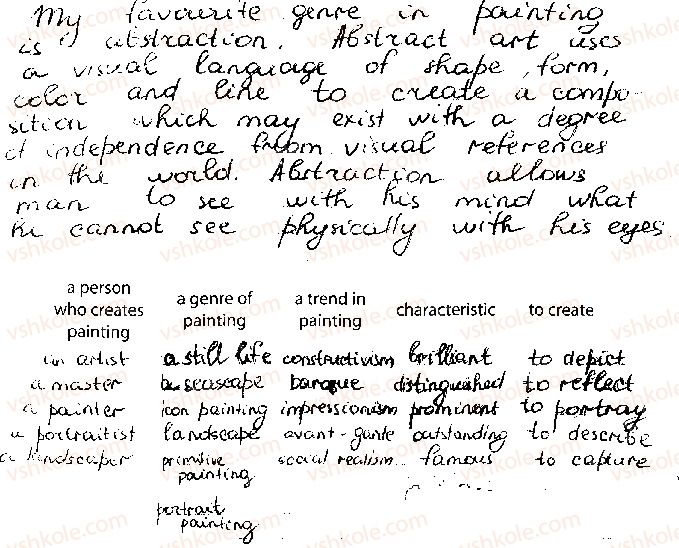 My favourite genre in painting
is abstraction. Abstract art uses
a visual language of shape, form,
color and line to create a compo-
sition which may exist with a degree
of independence from visual references
in the world. Abstraction allows
man to see with his mind what
he cannot see physically with his eyes.
a person who creates painting a genre of painting a trend in painting characteristic to create
an artist a still life constructivism brilliant to depict
a master a seascape baroque distinguished to reflect
a painter icon painting impressionism prominent to portray
a portraitist landscape avant-garde outstanding to describe
a landscaper primitive painting social realism famous to capture
portrait painting